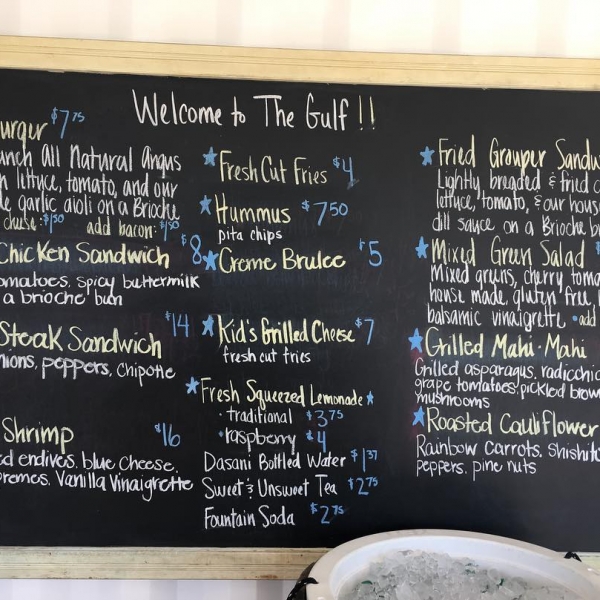 Welcome to The Gulf!!
$7.75
All Natural Angus
lettuce, tomato, and our
garlic aioli on a Brioche
$1.50 add bacon: $1.50
Chicken Sandwich $8
tomatoes, spicy buttermilk
a brioche bun
Steak Sandwich $14
peppers, chipotle
Shrimp $16
endives, blue cheese,
Vanilla Vinaigrette
Fresh Cut Fries $4
Hummus $7.50
pita chips
Creme Brulee $5
Kid's Grilled Cheese $7
fresh cut fries
Fresh Squeezed Lemonade
• traditional $3.75
• raspberry $4
Dasani Bottled Water $1.37
Sweet & Unsweet Tea $2.75
Fountain Soda $2.75
Fried Grouper
Lightly breaded & fried
lettuce, tomato, & our
dill sauce on a Brioche
Mixed Green Salad
Mixed greens, cherry
house made, gluten free
balsamic vinaigrette • add
Grilled Mahi-Mahi
Grilled asparagus, radicchio
grape tomatoes, pickled
mushrooms
Roasted Cauliflower
Rainbow Carrots,
peppers, pine nuts